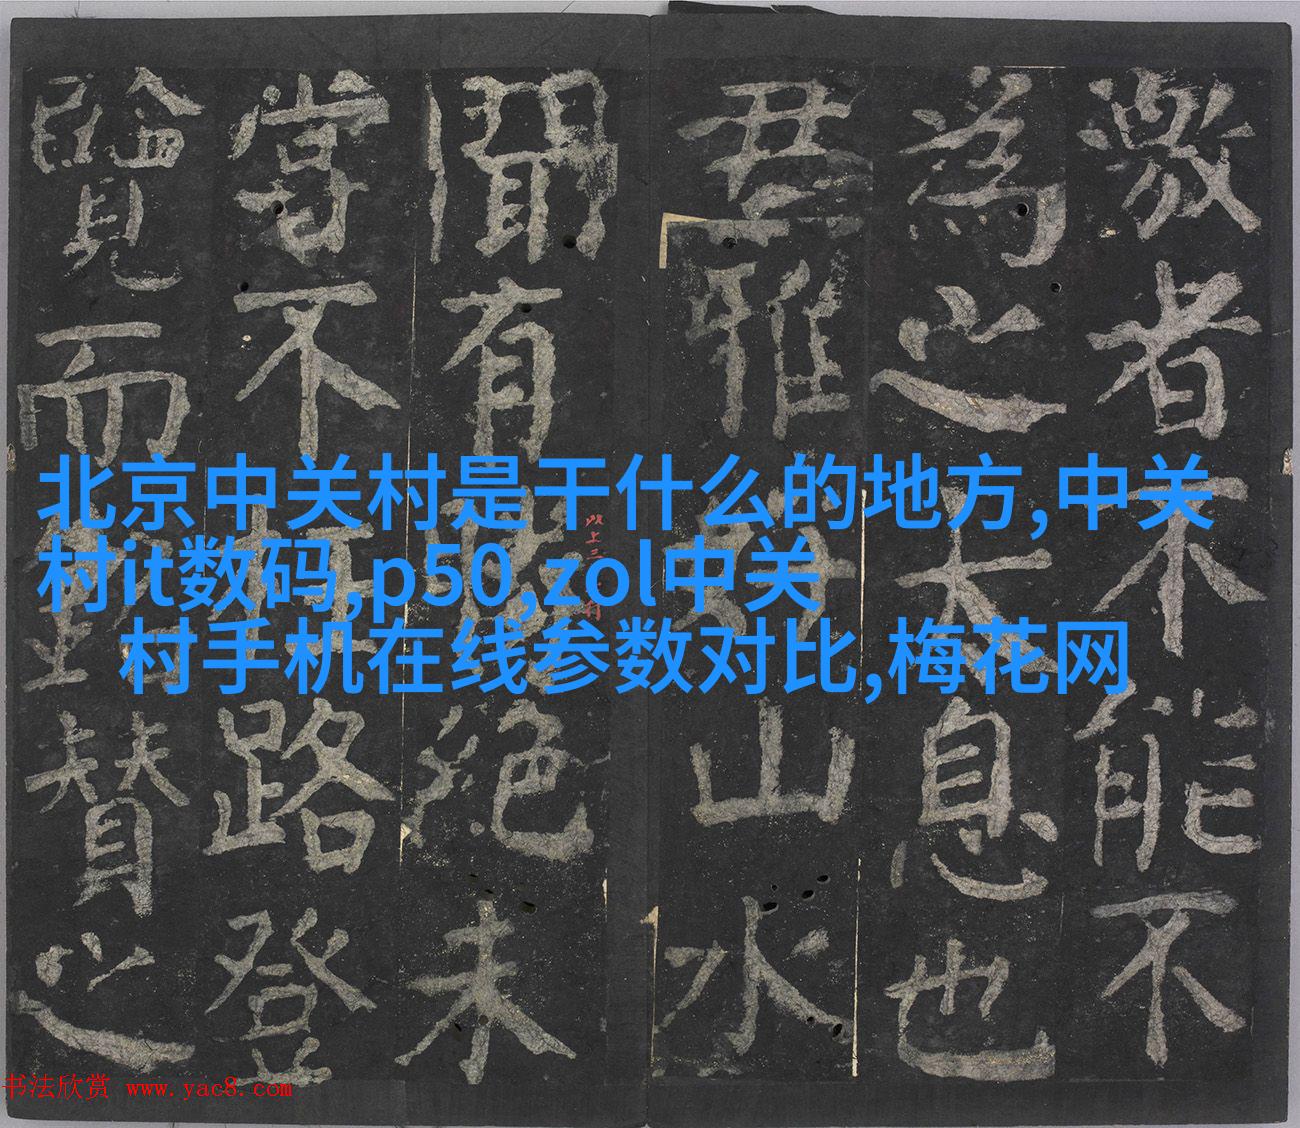 北京中关村是干什么的地方,中关
村it数码,p50,zol中关
村手机在线参数对比,梅花网
激者不能不
為之太息也
君雅好山水
聞有絕未
嘗不路登
覽而贊之
以上三
书法欣赏 www.yac8.com